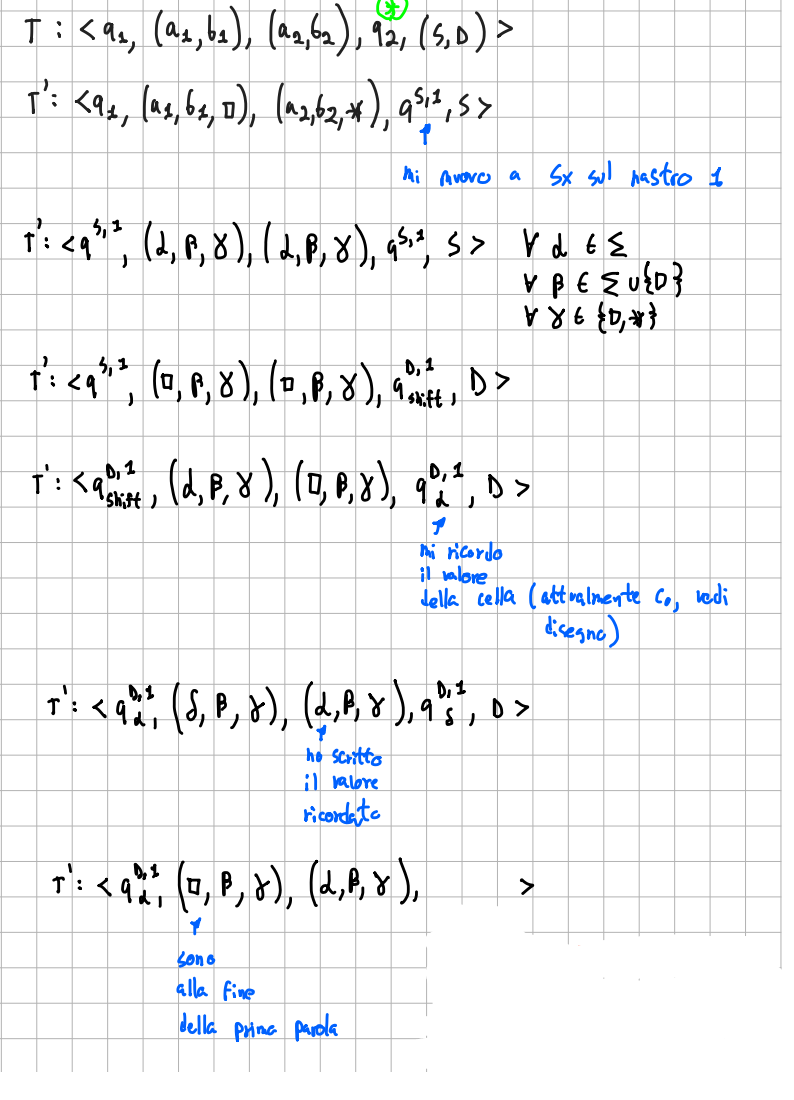 *
T : < q₁, (a₁,b₁), (a₂,b₂), q₂, (S,D) >
T' : < q₁, (a₁,b₁,□), (a₂,b₂,*), q^{S,1}, S >
mi muovo a sx sul nastro 1
T' : < q^{S,1}, (α,β,γ), (α,β,γ), q^{S,1}, S > ∀ α ∈ Σ
∀ β ∈ Σ ∪ {□}
∀ γ ∈ {□,*}
T' : < q^{S,1}, (□,β,γ), (□,β,γ), q^{D,1}_{shift}, D >
T' : < q^{D,1}_{shift}, (α,β,γ), (□,β,γ), q^{D,1}_α, D >
mi ricordo
il valore
della cella (attualmente c₀, vedi
disegno)
T' : < q^{D,1}_α, (δ,β,γ), (α,β,γ), q^{D,1}_δ, D >
ho scritto
il valore
ricordato
T' : < q^{D,1}_α, (□,β,γ), (α,β,γ), >
sono
alla fine
della prima parola